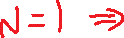 N=1 ⇒